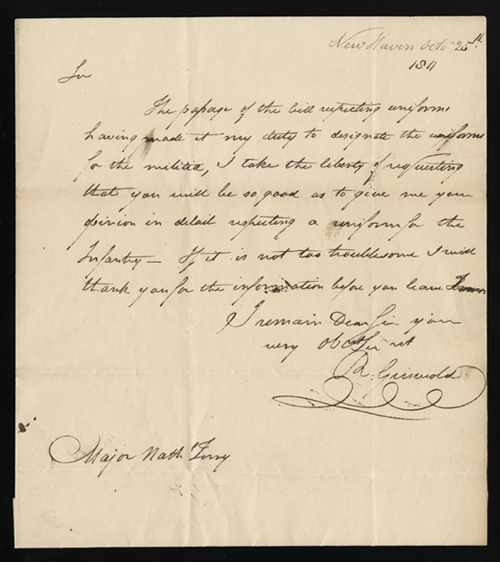 New Haven Octo 25th
1811
Sir
The passage of the bill respecting uniforms
having made it my duty to designate the uniforms
for the militia, I take the liberty of requesting
that you will be so good as to give me your
in detail respecting a uniform for the
Infantry— If it is not too troublesome I will
thank you for the information before you leave Town
I remain Dear Sir your
very Obed Servt
R. Griswold
Major Nath Terry